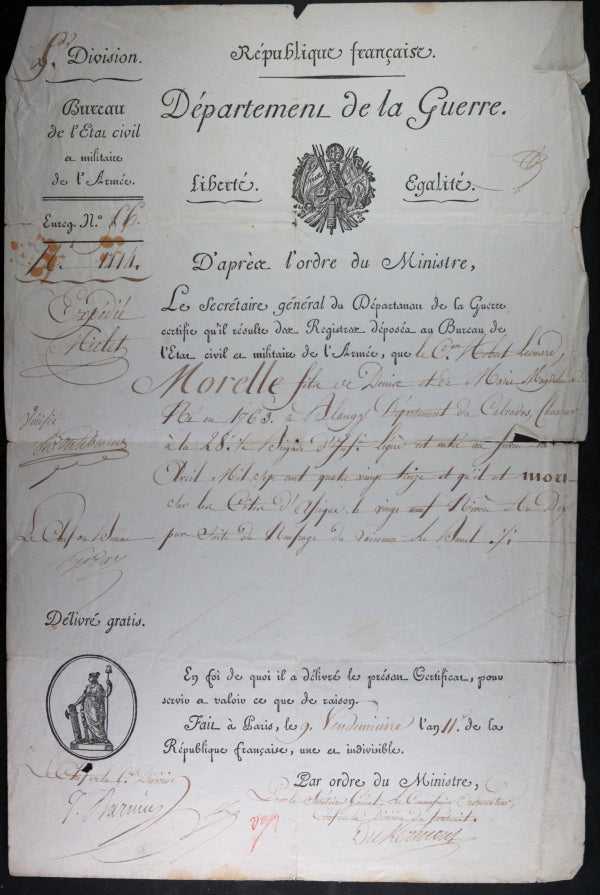 5e. Division.
République française.
Bureau
de l'Etat civil
et militaire
de l'Armée.
Département de la Guerre.
Liberté. Egalité.
Enreg. N.º 66.
D'après l'ordre du Ministre,
Expédié
Le Secrétaire général du Département de la Guerre
certifie qu'il résulte des Registres déposés au Bureau de
l'Etat civil et militaire de l'Armée, que le C.en Robert Leonard,
Morelle fils de Denis et de Marie Magdelaine
Né en 1763. à Blangy Département du Calvados, Chasseur
Vérifié
à la 28.e ½ Brigade d'Inf. Légère est entré au service en
Avril Mil sept cent quatre vingt treize et qu'il est mort
sur les Côtes d' le vingt neuf Nivôse An Dix
Le Chef du Bureau
par suite du Naufrage du Vaisseau Le Banel ./.
Délivré gratis.
En foi de quoi il a délivré le présent Certificat, pour
servir et valoir ce que de raison.
Fait à Paris, le 9. Vendemiaire l'an 11.e de la
République française, une et indivisible.
Le Chef de la 5.e Division
Par ordre du Ministre,
Pour le Secrétaire Général Le Commissaire Ordonnateur
Chef de la Division du